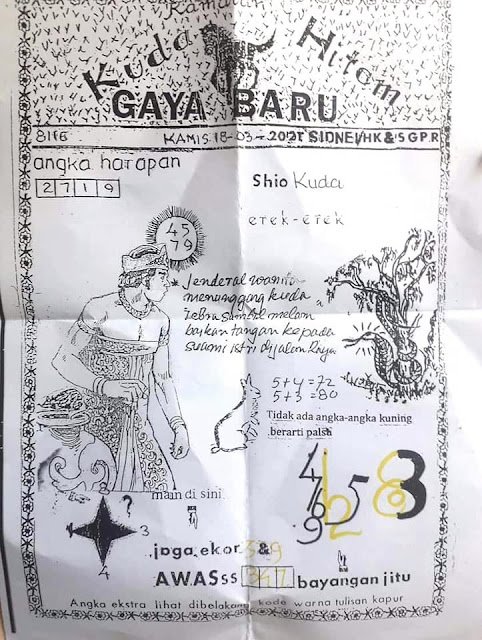 Ramalan
Kuda Hitam
GAYA BARU
8116 KAMIS 18-03-2021 SIDNEI/HK&SGPR
angka harapan
2719
Shio Kuda
erek-erek
45
79
* Jenderal wanita
menunggang kuda
zebra sambil melam
baikan tangan kepada
suami istri di jalan Raya
5+4=72
5+3=80
Tidak ada angka-angka kuning
berarti palsu
4
7 6 5 2 8 3
9
main di sini
?
3
4
jaga ekor 3&9
AWASss 347 bayangan jitu
Angka ekstra lihat dibelakang kode warna tulisan kapur